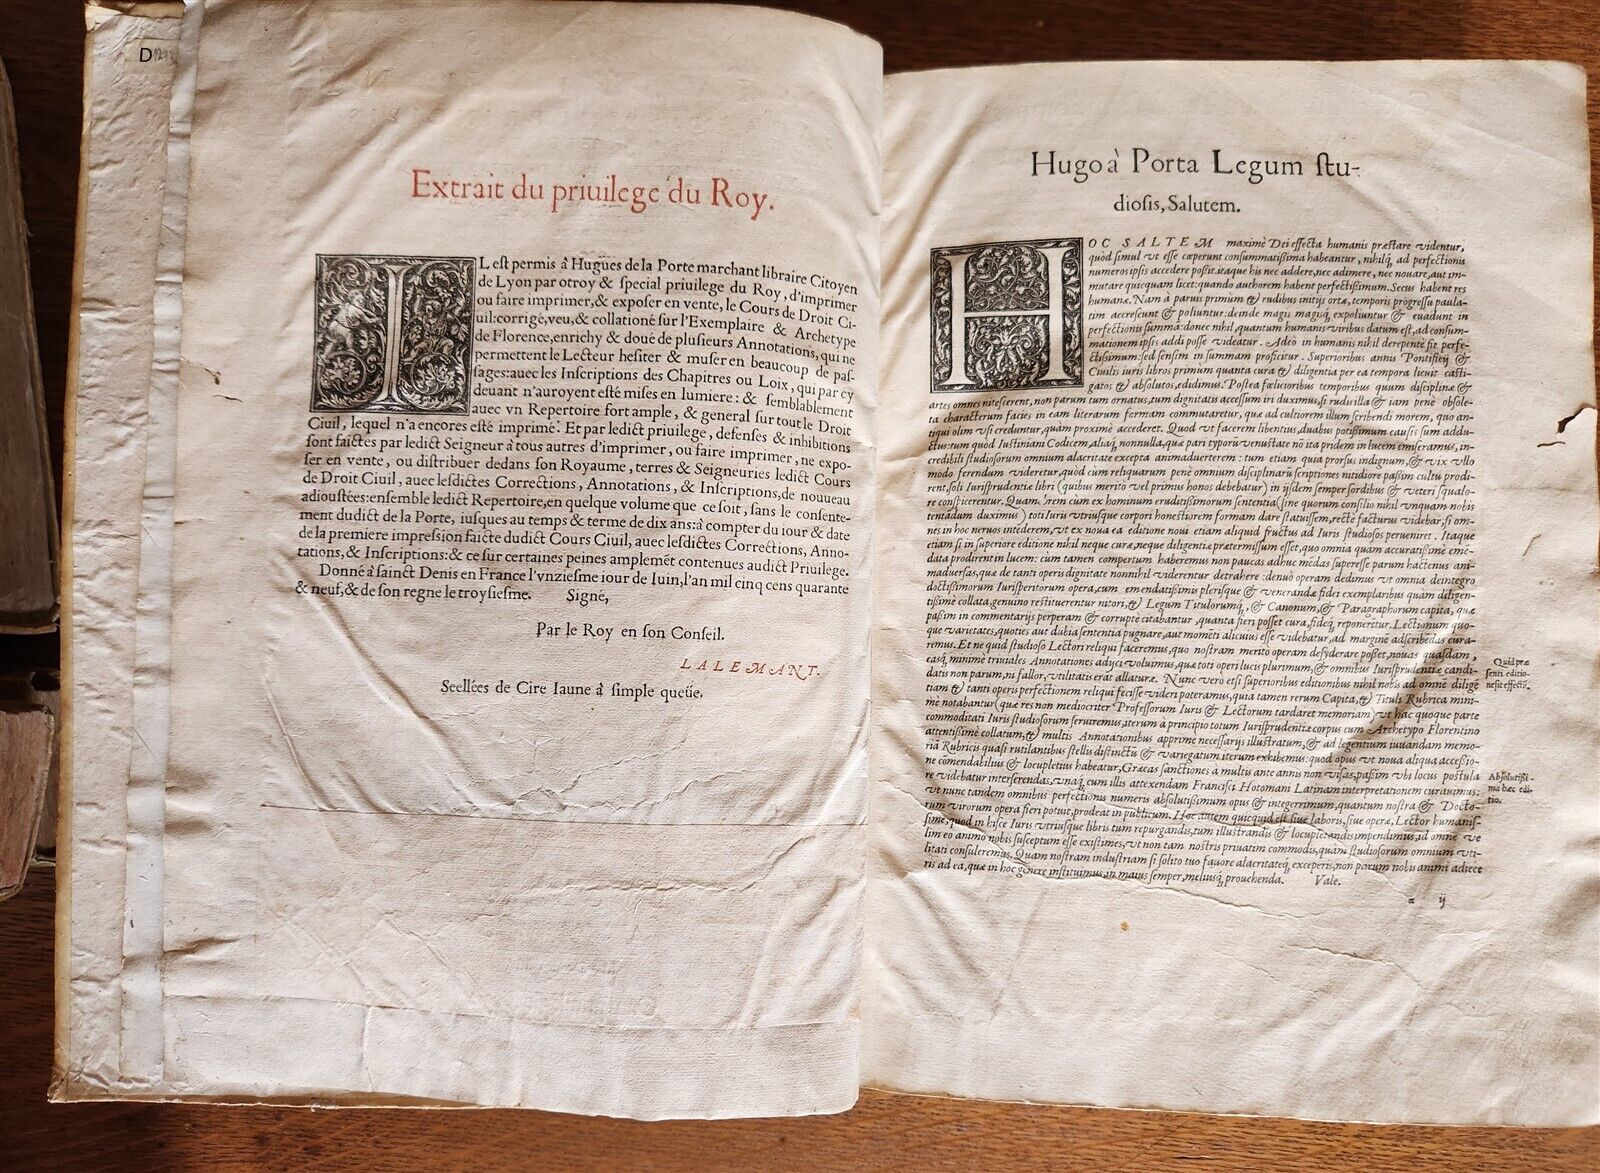 D
Extrait du priuilege du Roy.
IL est permis à Hugues de la Porte marchant libraire Citoyen
de Lyon par otroy & special priuilege du Roy, d'imprimer
ou faire imprimer, & exposer en vente, le Cours de Droit Ci-
uil: corrigé, veu, & collationé sur l'Exemplaire & Archetype
de Florence, enrichy & doué de plusieurs Annotations, qui ne
permettent le Lecteur hesiter & muser en beaucoup de pas-
sages: auec les Inscriptions des Chapitres ou Loix, qui par cy
deuant n'auroyent esté mises en lumiere: & semblablement
auec vn Repertoire fort ample, & general sur tout le Droit
Ciuil, lequel n'a encores esté imprimé. Et par ledict priuilege, defenses & inhibitions
sont faictes par ledict Seigneur à tous autres d'imprimer, ou faire imprimer, ne expo-
ser en vente, ou distribuer dedans son Royaume, terres & Seigneuries ledict Cours
de Droit Ciuil, auec lesdictes Corrections, Annotations, & Inscriptions, de nouueau
adioustées: ensemble ledict Repertoire, en quelque volume que ce soit, sans le consente-
ment dudict de la Porte, iusques au temps & terme de dix ans: à compter du iour & date
de la premiere impression faicte dudict Cours Ciuil, auec lesdictes Corrections, Anno-
tations, & Inscriptions: & ce sur certaines peines amplemēt contenues audict Priuilege.
Donné à sainct Denis en France l'vnziesme iour de Iuin, l'an mil cinq cens quarante
& neuf, & de son regne le troysiesme. Signé,
Par le Roy en son Conseil.
LALEMANT.
Seellées de Cire Iaune à simple queüe.
Hugo à Porta Legum stu-
diosis, Salutem.
HOC SALTEM maximè Dei effecta humanis præstare videntur,
quòd simul vt esse cœperunt consummatissima habeantur, nihilq́; ad perfectionis
numeros ipsis accedere possit: eaque his nec addere, nec adimere, nec nouare, aut im-
mutare quicquam licet: quando authorem habent perfectissimum. Secus habent res
humanæ. Nam à paruis primùm & rudibus initijs ortæ, temporis progressu paula-
tim accrescunt & poliuntur: deinde magis magisq́; expoliuntur & euadunt in
perfectionis summa: donec nihil, quantum humanis viribus datum est, ad consum-
mationem ipsis addi posse videatur. Adeò in humanis nihil derepentè fit perfe-
ctissimum: sed sensim in summam proficitur. Superioribus annis Pontificij &
Ciuilis iuris libros primùm quanta cura & diligentia per ea tempora licuit casti-
gatos & absolutos, edidimus. Postea fœlicioribus temporibus quum disciplinæ &
artes omnes nitescerent, non parum tum ornatus, tum dignitatis accessum iri duximus, si rudis illa & iam penè obsole-
ta characterum facies in eam literarum formam commutaretur, quæ ad cultiorem illum scribendi morem, quo an-
tiqui olim vsi creduntur, quàm proximè accederet. Quod vt facerem libentius, duabus potissimùm causis sum addu-
ctus: tum quòd Iustiniani Codicem, aliaq́; nonnulla, quæ pari typorū venustate nō ita pridem in lucem emiseramus, in-
credibili studiosorum omnium alacritate excepta animaduerterem: tum etiam quia prorsus indignum, & vix vllo
modo ferendum videretur, quòd cùm reliquarum penè omnium disciplinarū scriptiones nitidiore passim cultu prodi-
rent, soli Iurisprudentiæ libri (quibus meritò vel primus honos debebatur) in ijsdem semper sordibus & veteri squalo-
re conspicerentur. Quam rem cum ex hominum eruditissimorum sententia (sine quorum consilio nihil vnquam nobis
tentādum duximus) toti Iuris vtriusque corpori honestiorem formam dare statuissem, rectè facturus videbar, si om-
nes in hoc neruos intēderem, vt ex noua ea editione noui etiam aliquid fructus ad Iuris studiosos perueniret. Itaque
etiam si in superiore editione nihil neque curæ, neque diligentiæ prætermissum esset, quo omnia quàm accuratissimè eme-
data prodirent in lucem: cum tamen compertum haberemus non paucas adhuc mēdas superesse parum hactenus ani-
maduersas, quæ de tanti operis dignitate nonnihil viderentur detrahere: denuò operam dedimus vt omnia deintegro
doctissimorum Iurisperitorum opera, cum emendatissimis plerisque & venerandæ fidei exemplaribus quàm diligen-
tissimè collata, genuino restituerentur nitori, & Legum Titulorumq́;, & Canonum, & Paragraphorum capita, quæ
passim in commentarijs perperam & corruptè citabantur, quanta fieri posset cura, fideq́;, reponerētur. Lectionum quo-
que varietates, quoties aut dubia sententia pugnare, aut momēti alicuius esse videbatur, ad marginē adscribēdas cura-
remus. Et ne quid studioso Lectori reliqui faceremus, quo nostram meritò operam desyderare posset, nouas quasdam,
easq́; minimè triuiales Annotationes adijci voluimus, quæ toti operi lucis plurimùm, & omnibus Iurisprudentiæ candi-
datis non parum, ni fallor, vtilitatis erāt allaturæ. Nunc verò etsi superioribus editionibus nihil nobis ad omnē diligē
tiam & tanti operis perfectionem reliqui fecisse videri poteramus, quia tamen rerum Capita, & Tituli Rubrica mini-
mè notabantur (quæ res non mediocriter Professorum Iuris & Lectorum tardaret memoriam) vt hac quoque parte
commoditati Iuris studiosorum seruiremus, iterum à principio totum Iurisprudentiæ corpus cum Archetypo Florentino
attentissimè collatum, & multis Annotationibus apprimè necessarijs illustratum, & ad legentium iuuandam memo-
riā Rubricis quasi rutilantibus stellis distinctū & variegatum iterum exhibemus: quod opus vt noua aliqua accessio-
ne comendabilius & locupletius habeatur, Græcas sanctiones à multis ante annis non visas, passim vbi locus postula
re videbatur interserendas, vnaq́; cum illis attexendam Francisci Hotomani Latinam interpretationem curauimus:
vt nunc tandem omnibus perfectionis numeris absolutissimum opus & integerrimum, quantum nostra & Docto-
rum virorum opera fieri potuit, prodeat in publicum. Hoc autem quicquid est siue laboris, siue operæ, Lector humanis-
sime, quod in hisce Iuris vtriusque libris tum repurgandis, tum illustrandis & locupletandis impendimus, id omne ve
lim eo animo nobis susceptum esse existimes, vt non tam nostris priuatim commodis, quàm studiosorum omnium vti-
litati consuleremus. Quam nostram industriam si solito tuo fauore alacritateq́; exceperis, non parum nobis animi adiece
ris ad ea, quæ in hoc genere instituimus, in maius semper, meliusq́; prouehenda. Vale.
Quid præ
senti editio-
ne sit effectū.
Absolutissi-
ma hæc edi-
tio.
a ij